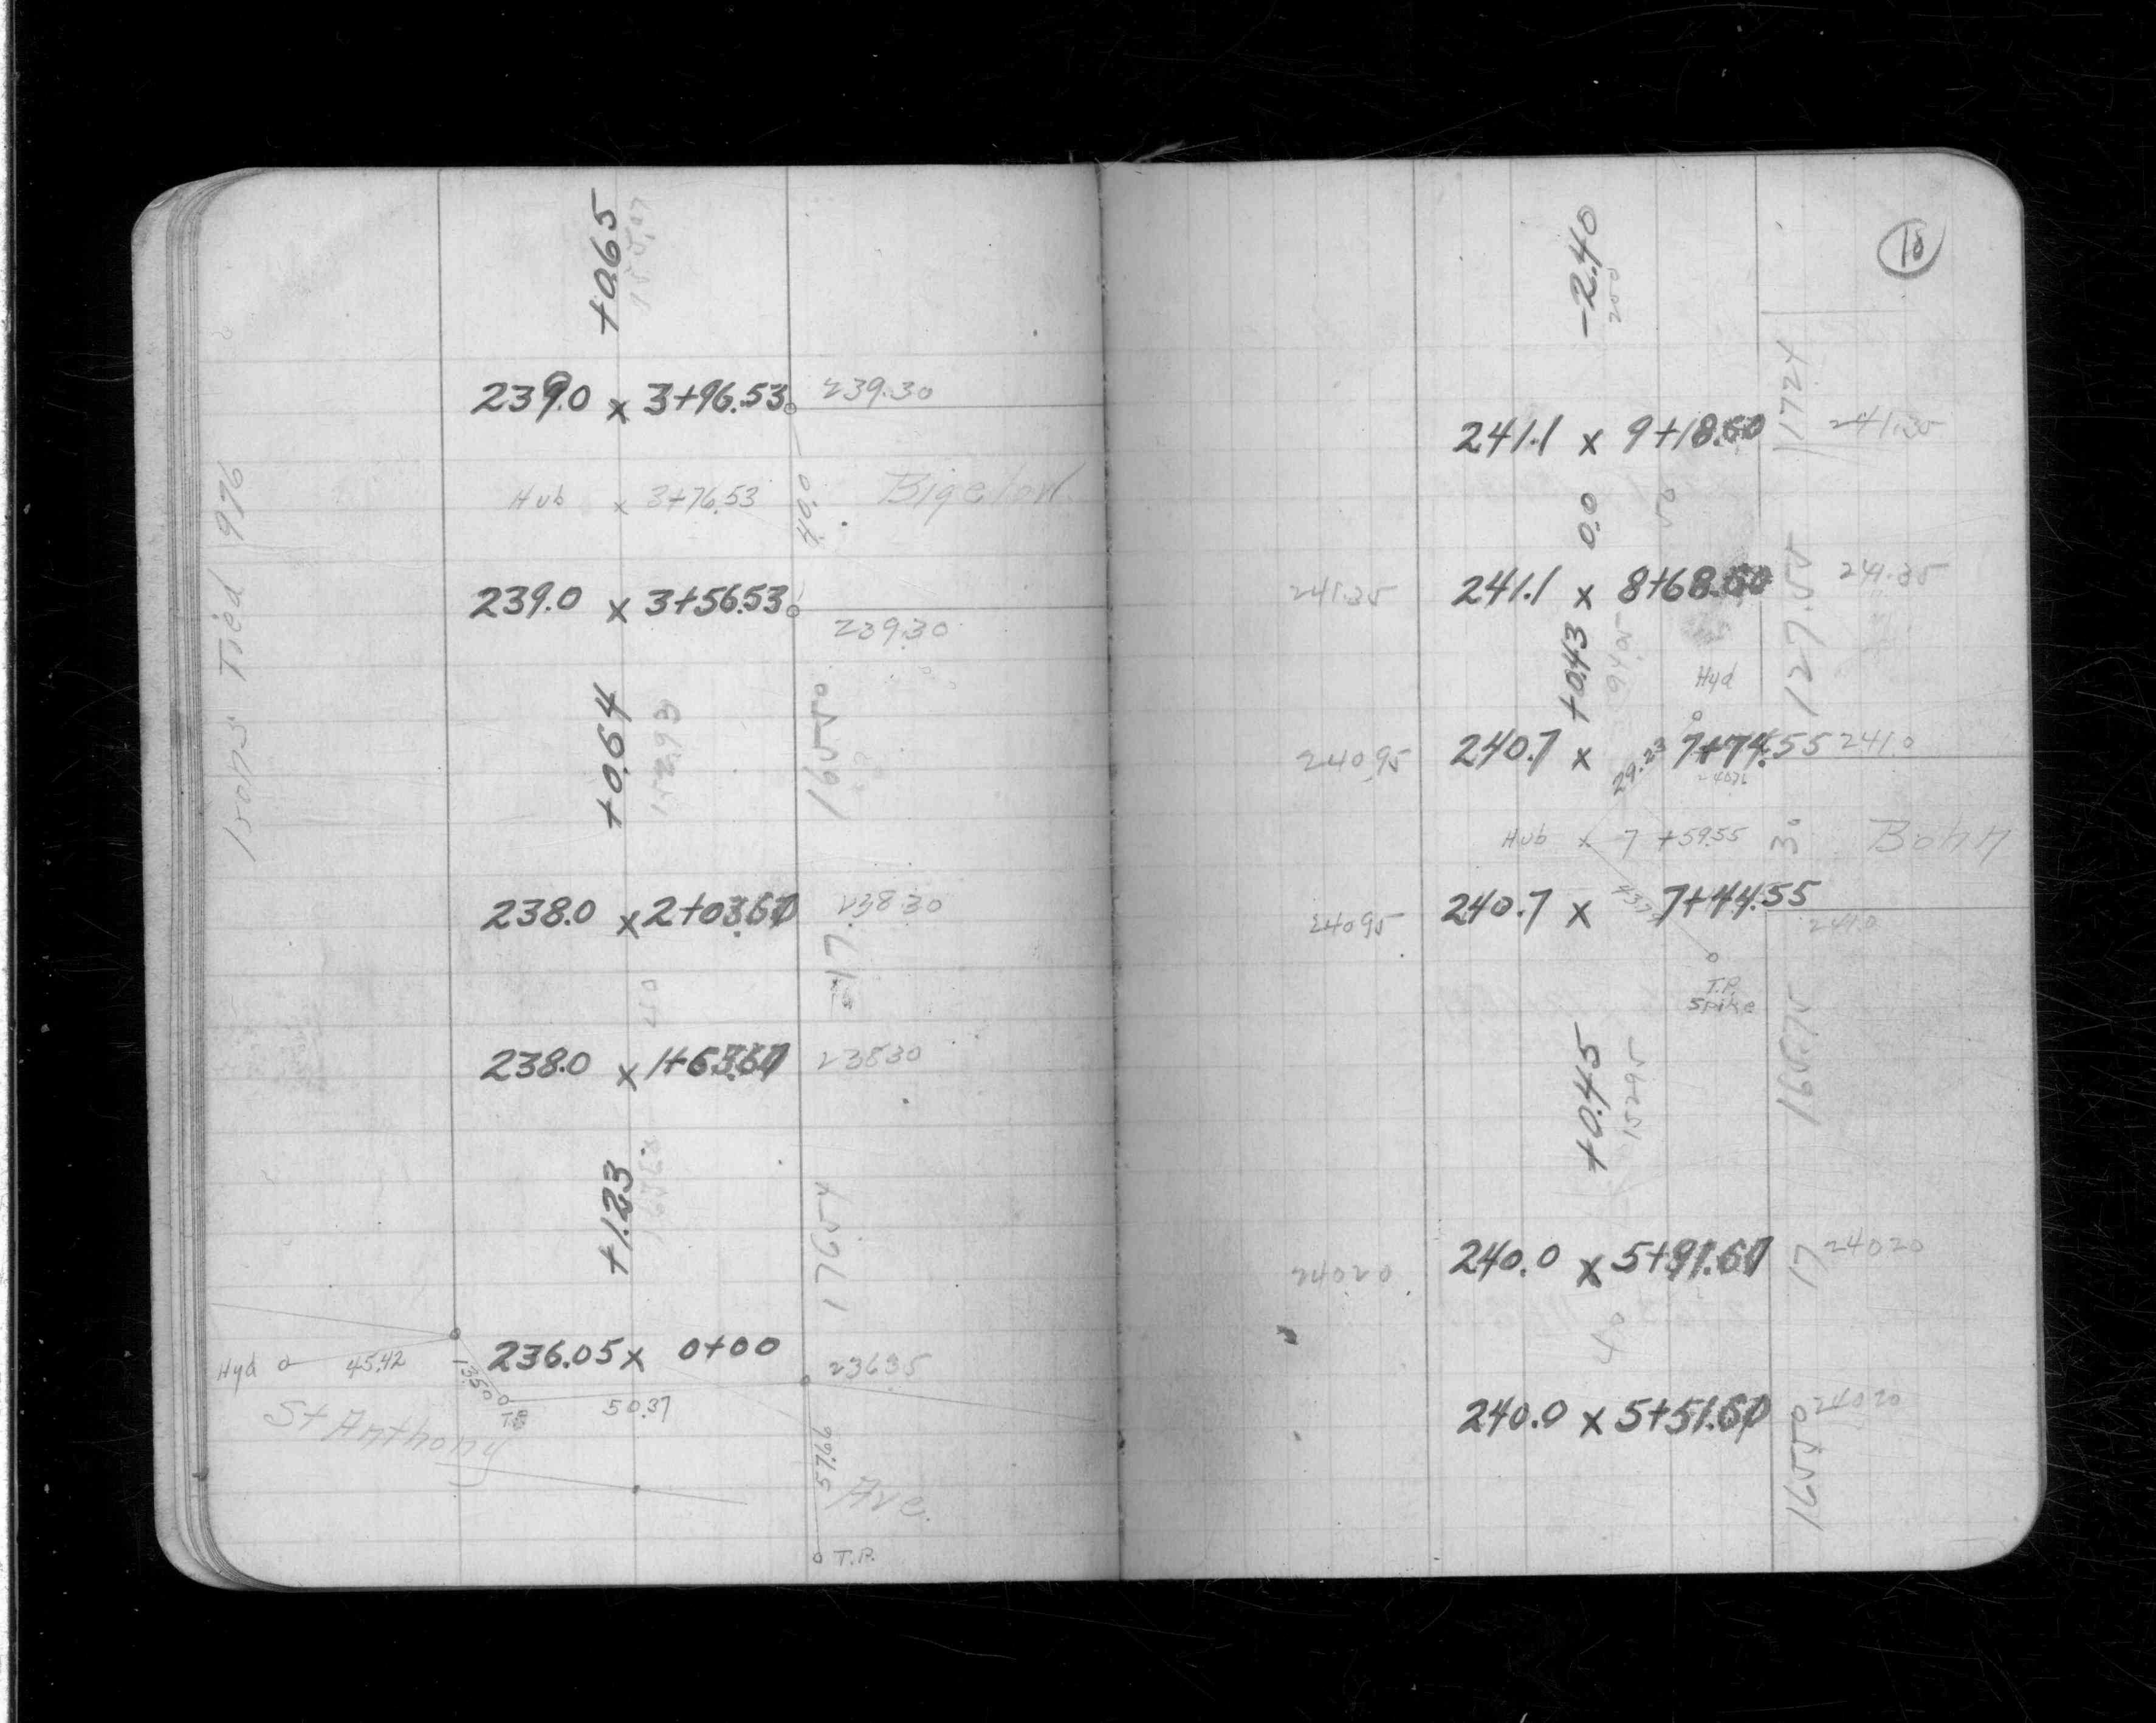 +0.65
155.07
239.0 x 3+96.53 239.30
Hub x 3+76.53
40.0
Bigelow
239.0 x 3+56.53
239.30
Irons Tied 976
+0.64
152.93
165.50
238.0 x 2+03.60 238.30
17.
40
238.0 x 1+63.60 238.30
+1.23
163.60
176.54
236.05 x 0+00
236.35
Hyd 45.42
13.50
T.P.
50.37
St Anthony
57.66
Ave.
T.P.
18
-2.40
200
1724
241.1 x 9+18.60 241.35
0.0
50
127.55
241.35 241.1 x 8+68.60 241.35
+0.43
94.05
Hyd
240.95 240.7 x 29.23 7+74.55 241.0
Hub x 7+59.55
30
Bohn
240.95 240.7 x 7+44.55
241.0
T.P.
Spike
+0.45
152.95
165.75
240.20 240.0 x 5+91.60 17 240.20
40
240.0 x 5+51.60 240.20
165.50